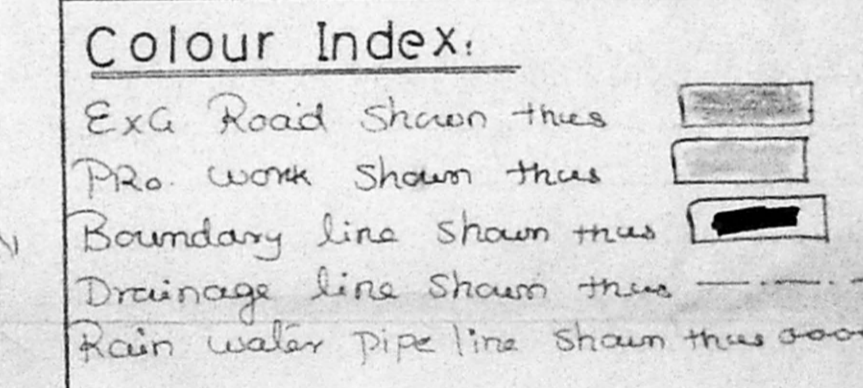 Colour Index:
ExG Road Shown thus
PRo. work Shown thus
Boundary line Shown thus
Drainage line Shown thus
Rain water pipe line Shown thus